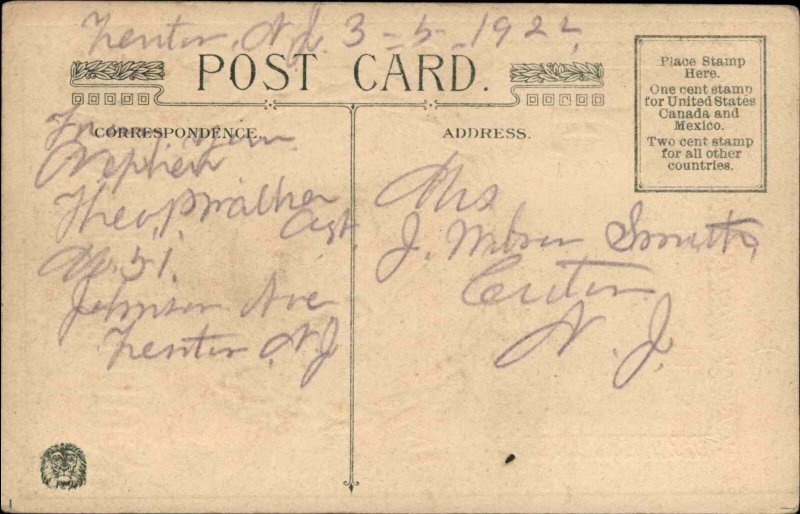 Trenton, N.J. 3-5-1922,
POST CARD.
Place Stamp
Here.
One cent stamp
for United States
Canada and
Mexico.
Two cent stamp
for all other
countries.
CORRESPONDENCE.
ADDRESS.
From your
Nephew
Theo
No. 51
Johnson Ave
Trenton N.J.
Mrs
J. Smith,
N. J.